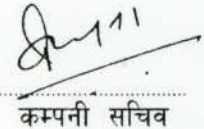 कम्पनी सचिव